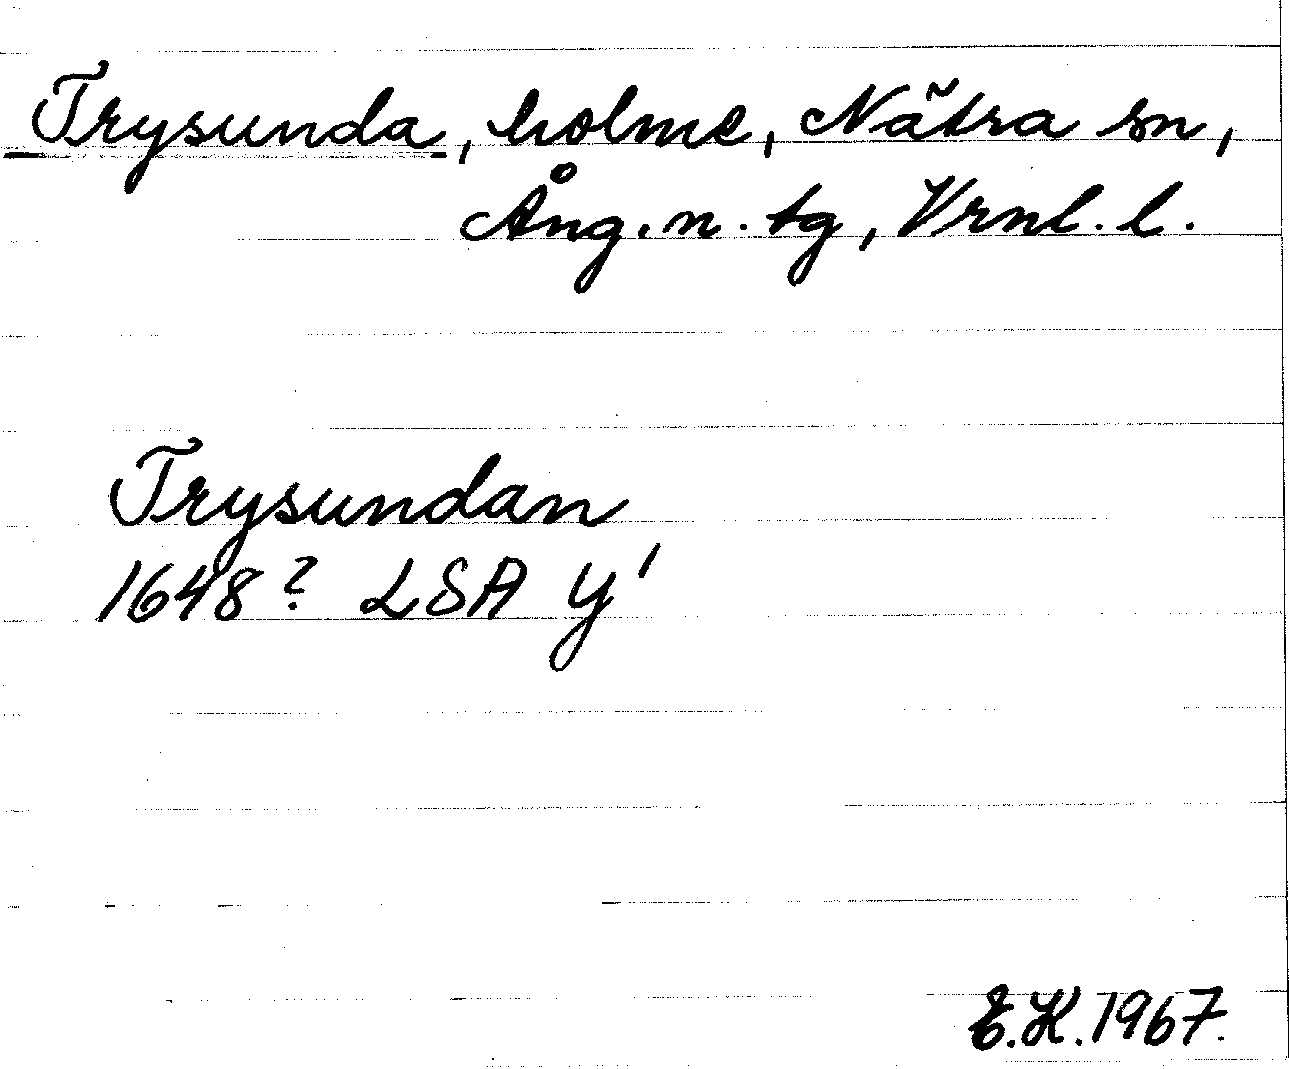 Trysunda, holme, Nätra sn,
Ång. n. tg, Vrnl. l.
Trysundan
1648? LSA Y'
E.K. 1967.